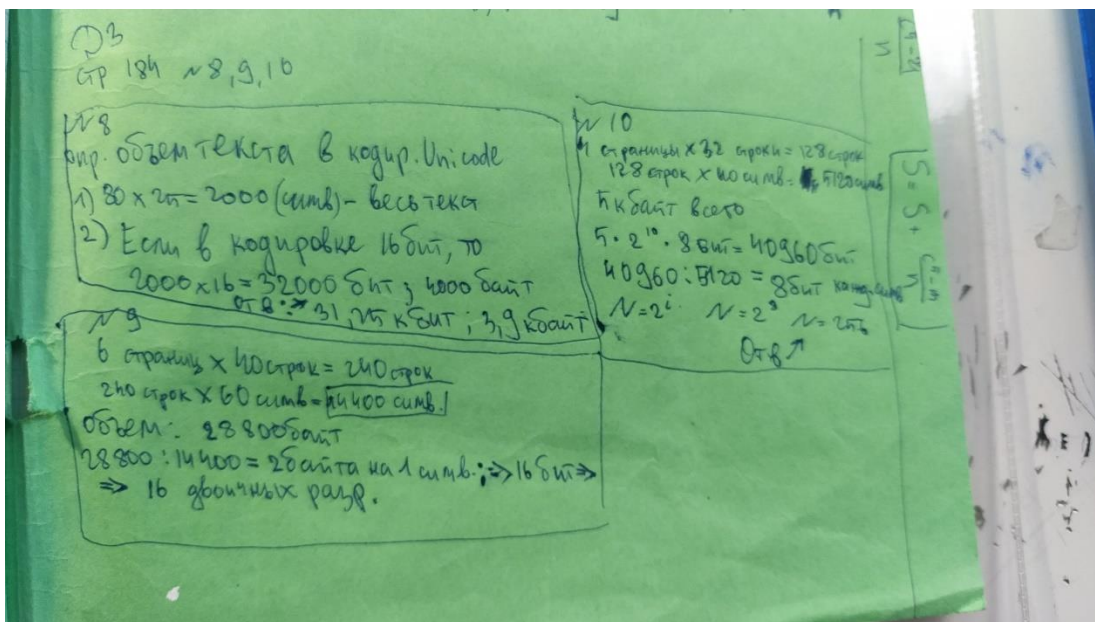 ДЗ
стр 184 №8,9,10
№8
опр. объем текста в кодир. Unicode
1) 80 x 25 = 2000 (симв) - весь текст
2) Если в кодировке 16 бит, то
2000 x 16 = 32000 бит ; 4000 байт
отв: 31,25 кбит ; 3,9 кбайт
№9
6 страниц x 40 строк = 240 строк
240 строк x 60 симв = 14400 симв.
Объем: 28800 байт
28800 : 14400 = 2 байта на 1 симв. ; => 16 бит =>
=> 16 двоичных разр.
№10
4 страницы x 32 строки = 128 строк
128 строк x 40 симв = 5120 симв
5 кбайт всего
5 · 2¹⁰ · 8 бит = 40960 бит
40960 : 5120 = 8 бит кажд. симв
N = 2ⁱ N = 2⁸ N = 256
Отв ↗
S = S +